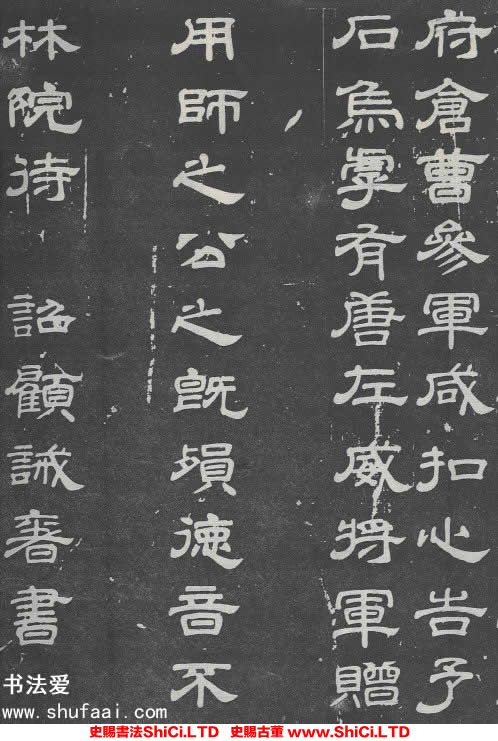 府倉曹參軍咸扣心告予
石烏虖有唐左威將軍贈
用師之公之既損德音不
林院待 詔顧誡奢書
书法爱
www.shufaai.com
史賜書法ShiCi.LTD 史賜古董 www.ShiCi.LTD